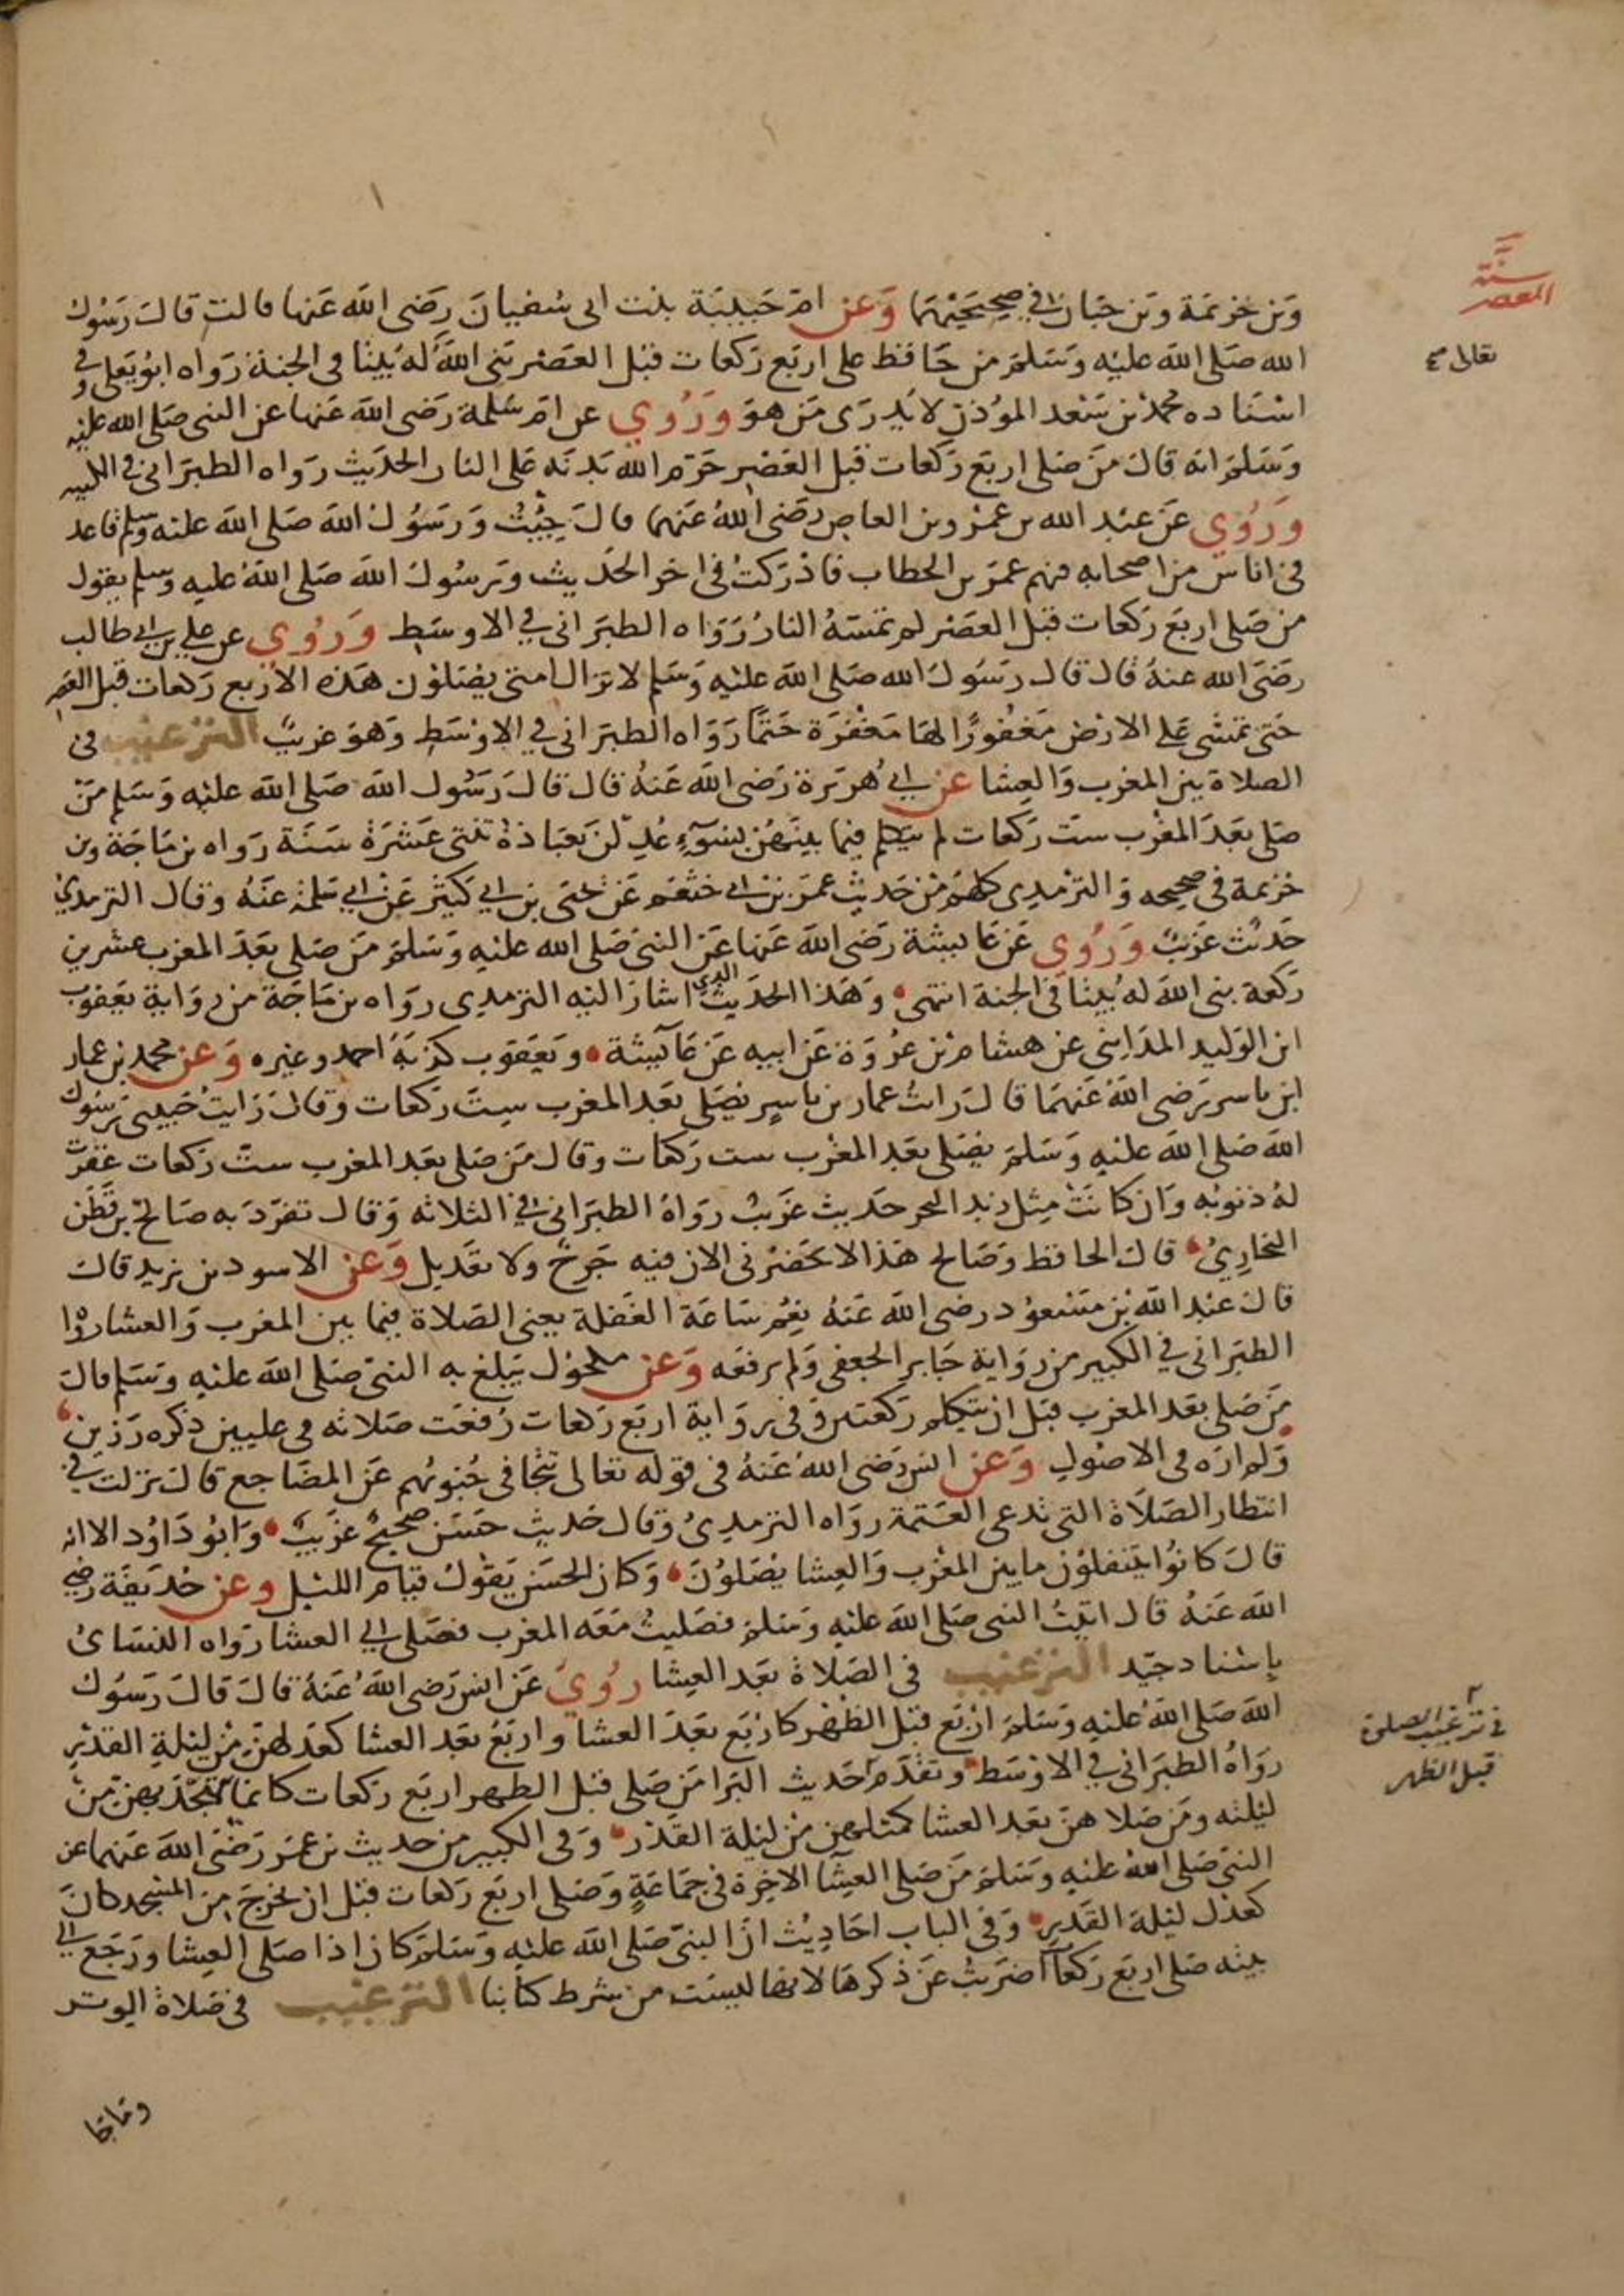 سنة
العصر
وبن خزيمة وبن حبان في صحيحيهما وعن ام حبيبة بنت ابى سفيان رضى الله عنها قالت قال رسول
تعالى
الله صلى الله عليه وسلم من حافظ على اربع ركعات قبل العصر بنى الله له بيتا في الجنة رواه ابو يعلى وفي
اسناده محمد بن سعد الموذن لا يدرى من هو وروي عن ام سلمة رضى الله عنها عن النبى صلى الله عليه
وسلم انه قال من صلى اربع ركعات قبل العصر حرم الله بدنه على النار الحديث رواه الطبرانى في الكبير
وروي عن عبد الله بن عمرو بن العاص رضى الله عنهما قال جيت ورسول الله صلى الله عليه وسلم قاعد
فى اناس من اصحابه فيهم عمر بن الخطاب فادركت فى اخر الحديث ورسول الله صلى الله عليه وسلم يقول
من صلى اربع ركعات قبل العصر لم تمسه النار رواه الطبرانى في الاوسط وروي عن على بن ابي طالب
رضى الله عنه قال قال رسول الله صلى الله عليه وسلم لا تزال امتى يصلون هذه الاربع ركعات قبل العصر
حتى تمشى على الارض مغفورا لها مغفرة حتما رواه الطبرانى في الاوسط وهو غريب الترغيب فى
الصلاة بين المغرب والعشا عن ابي هريرة رضى الله عنه قال قال رسول الله صلى الله عليه وسلم من
صلى بعد المغرب ست ركعات لم يتكلم فيما بينهن بسوء عدلن بعبادة ثنتى عشرة سنة رواه بن ماجة وبن
خزيمة فى صحيحه والترمذى كلهم من حديث عمر بن ابى خثعم عن يحيى بن ابي كثير عن ابي سلمة عنه وقال الترمذي
حديث غريب وروي عن عايشة رضى الله عنها عن النبى صلى الله عليه وسلم من صلى بعد المغرب عشرين
ركعة بنى الله له بيتا فى الجنة انتهى وهذا الحديث الذي اشار اليه الترمذى رواه بن ماجة من رواية يعقوب
ابن الوليد المداينى عن هشام بن عروة عن ابيه عن عايشة ويعقوب كذبه احمد وغيره وعن محمد بن عمار
ابن ياسر رضى الله عنهما قال رايت عمار بن ياسر يصلى بعد المغرب ست ركعات وقال رايت حبيبى رسول
الله صلى الله عليه وسلم يصلى بعد المغرب ست ركعات وقال من صلى بعد المغرب ست ركعات غفرت
له ذنوبه وان كانت مثل زبد البحر حديث غريب رواه الطبرانى في الثلاثة وقال تفرد به صالح بن قطن
البخاري قال الحافظ وصالح هذا لا يحضرنى الان فيه جرح ولا تعديل وعن الاسود بن يزيد قال
قال عبد الله بن مسعود رضى الله عنه نعم ساعة الغفلة يعنى الصلاة فيما بين المغرب والعشا رواه
الطبرانى في الكبير من رواية جابر الجعفى ولم يرفعه وعن مكحول يبلغ به النبى صلى الله عليه وسلم قال
من صلى بعد المغرب قبل ان يتكلم ركعتين وفى رواية اربع ركعات رفعت صلاته فى عليين ذكره رزين
ولم اره فى الاصول وعن انس رضى الله عنه فى قوله تعالى تتجافى جنوبهم عن المضاجع قال نزلت في
انتظار الصلاة التى تدعى العتمة رواه الترمذى وقال حديث حسن صحيح غريب وابو داود الا انه
قال كانوا يتنفلون ما بين المغرب والعشا يصلون وكان الحسن يقول قيام الليل وعن حذيفة رضي
الله عنه قال اتيت النبى صلى الله عليه وسلم فصليت معه المغرب فصلى الي العشا رواه النسائ
باسناد جيد الترغيب فى الصلاة بعد العشا روي عن انس رضى الله عنه قال قال رسول
الله صلى الله عليه وسلم اربع قبل الظهر كاربع بعد العشا واربع بعد العشا كعدلهن من ليلة القدر
في ترغيب الصلوة
قبل الظهر
رواه الطبرانى في الاوسط وتقدم حديث البرا من صلى قبل الظهر اربع ركعات كانما تهجد بهن من
ليلته ومن صلاهن بعد العشا كمثلهن من ليلة القدر وفى الكبير من حديث بن عمر رضى الله عنهما عن
النبى صلى الله عليه وسلم من صلى العشا الاخرة فى جماعة وصلى اربع ركعات قبل ان يخرج من المسجد كان
كعدل ليلة القدر وفى الباب احاديث ان النبى صلى الله عليه وسلم كان اذا صلى العشا ورجع الي
بيته صلى اربع ركعا اضربت عن ذكرها لانها ليست من شرط كتابنا الترغيب فى صلاة الوتر
وما جا